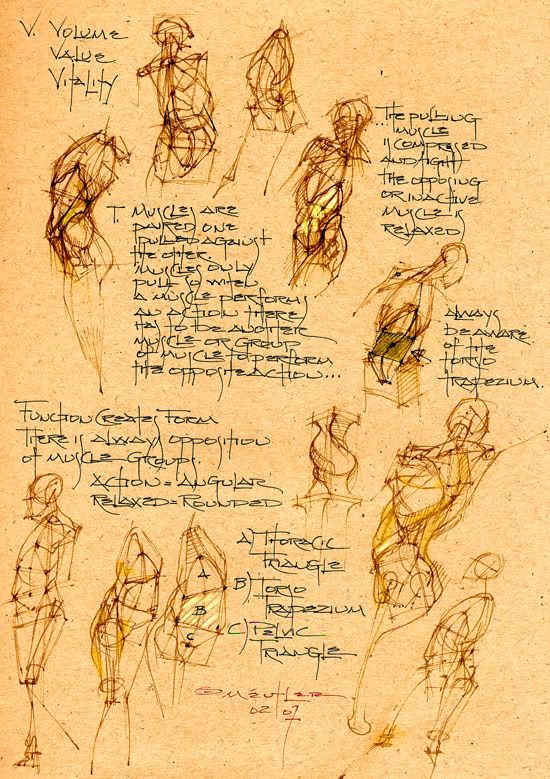 V. VOLUME
VALUE
VITALITY
...THE PULLING
MUSCLE
IS COMPRESED
AND TIGHT
THE OPPOSING
OR INACTIVE
MUSCLE IS
RELAXED
T. MUSCLES ARE
PAIRED ONE
PULLED AGAINST
THE OTHER
MUSCLES ONLY
PULL SO WHEN
A MUSCLE PERFORMS
AN ACTION THERE
HAS TO BE ANOTHER
MUSCLE OR GROUP
OF MUSCLE TO PERFORM
THE OPPOSITE ACTION...
ALWAYS
BE AWARE
OF THE
TORSO
TRAPEZIUM.
FUNCTION CREATES FORM
THERE IS ALWAYS OPPOSITION
OF MUSCLE GROUPS.
ACTION = ANGULAR
RELAXED = ROUNDED
A) THORACIC
TRIANGLE
B) TORSO
TRAPEZIUM
C) PELVIC
TRIANGLE
A
B
C
02 07